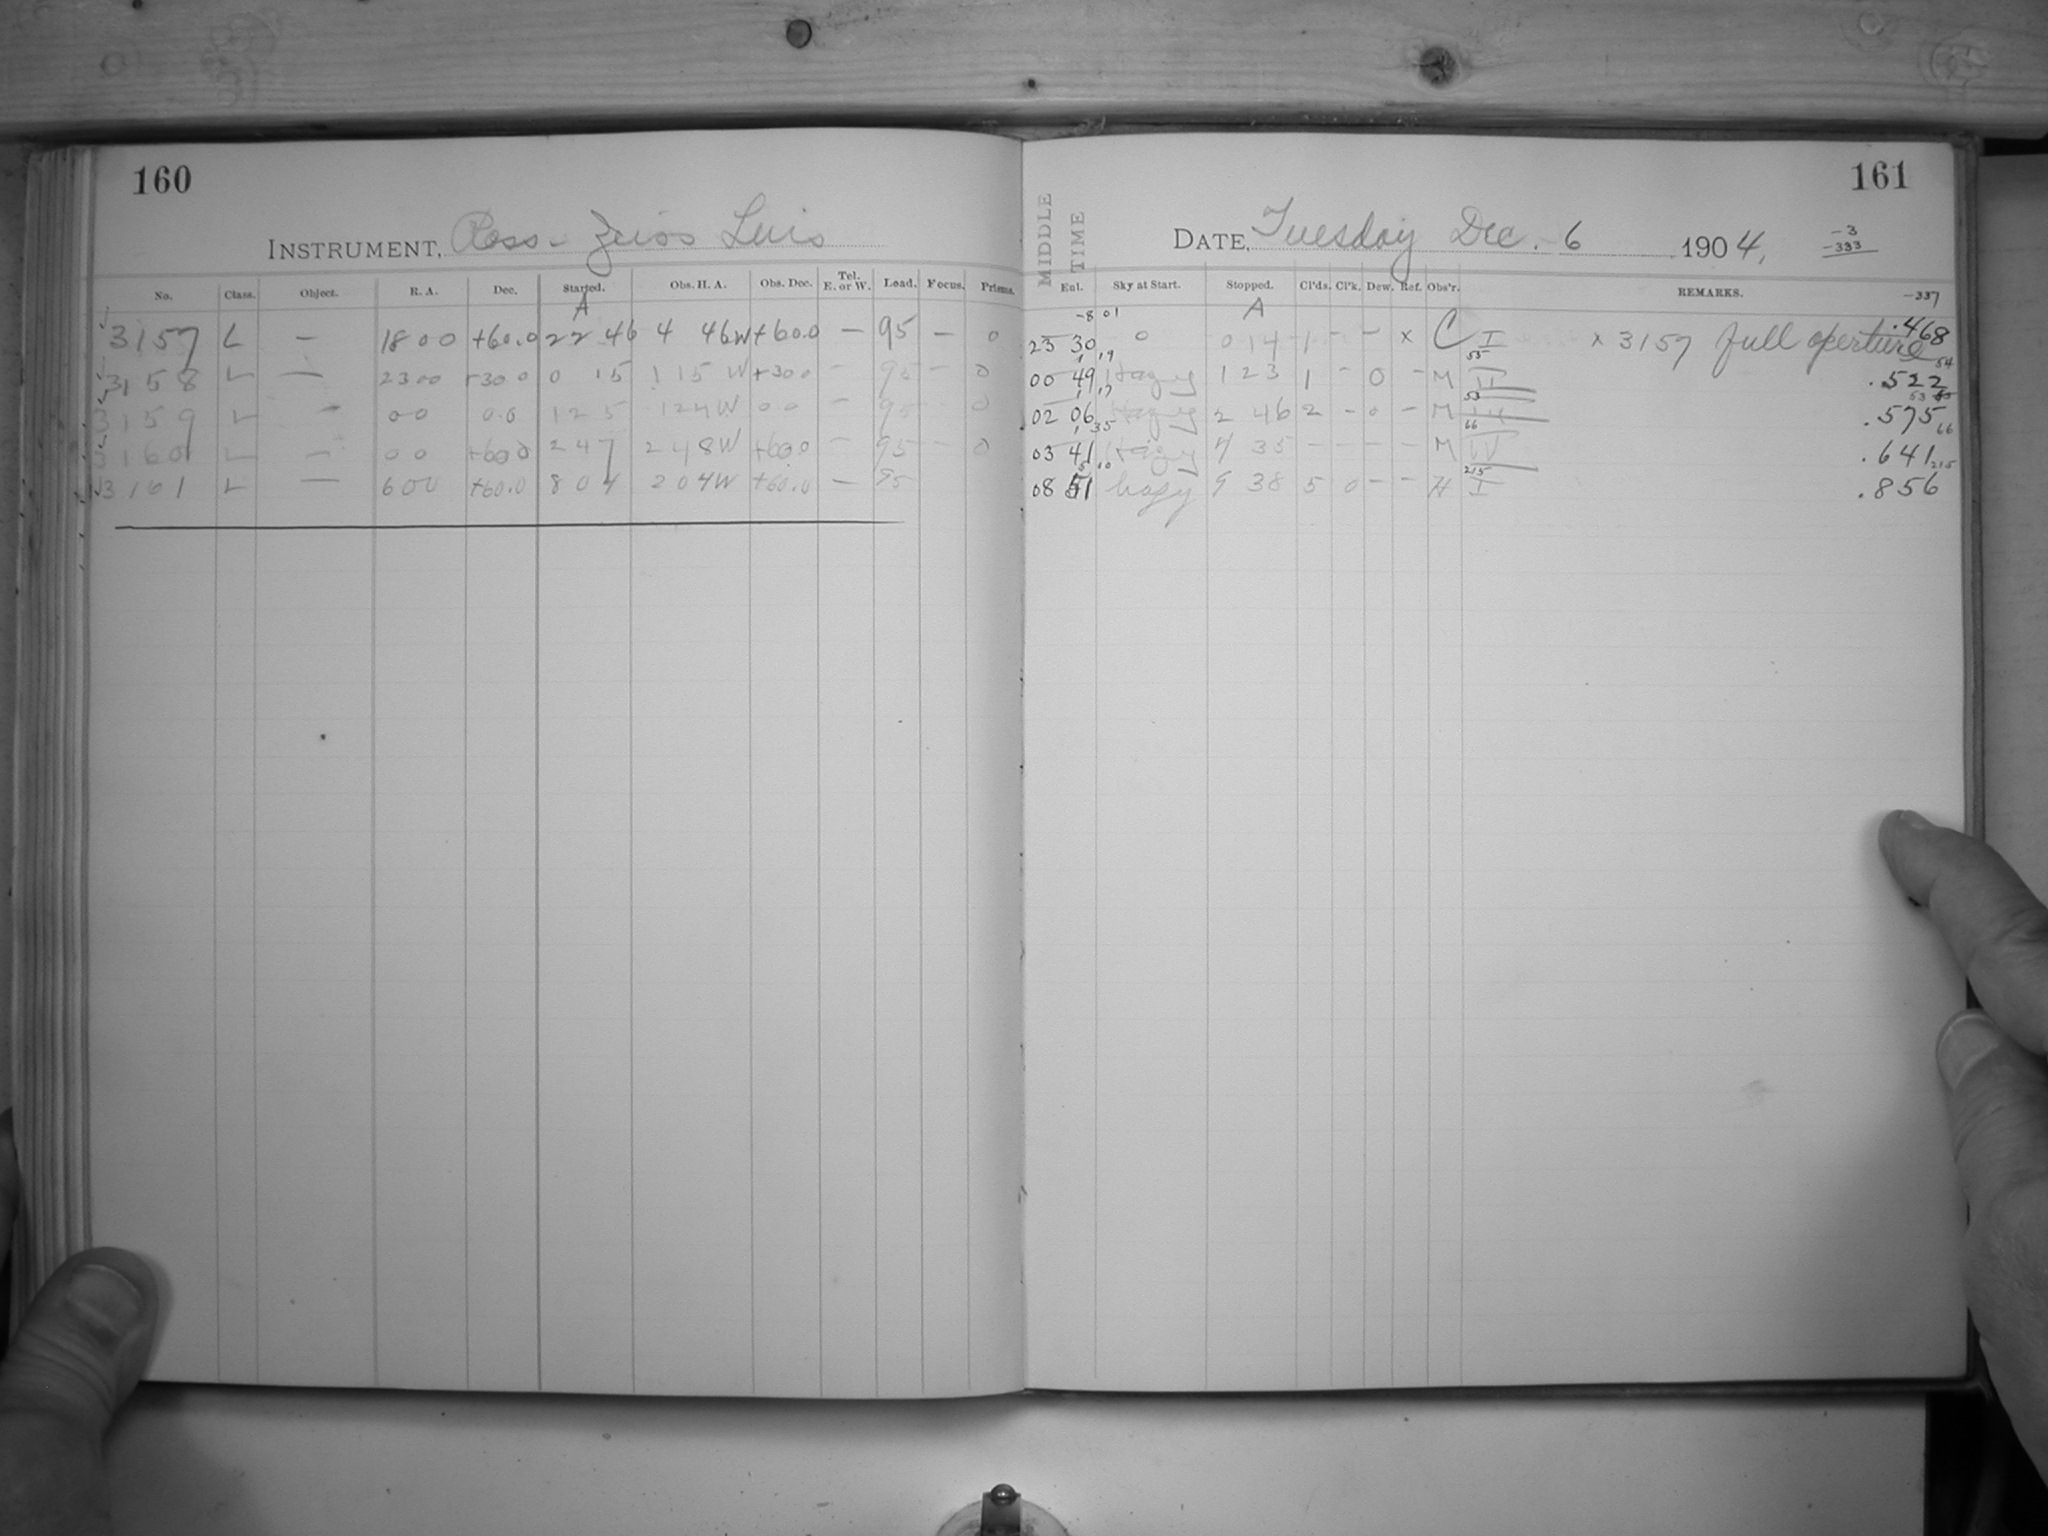 160
INSTRUMENT, Ross-Zeiss Lens
No. Class. Object. R. A. Dec. Started. Obs. H. A. Obs. Dec. Tel. E. or W. Load. Focus. Prisms.
A
3157 L — 18 00 +60.0 22 46 4 46W +60.0 — 95 — 0
3158 L — 23 00 +30 0 0 15 1 15 W +30 0 — 95 — 0
3159 L — 0 0 0.0 1 25 1 24W 0 0 — 95 — 0
3160 L — 0 0 +60 0 2 47 2 48W +60.0 — 95 — 0
3161 L — 6 00 +60.0 8 04 2 04W +60.0 — 95
161
MIDDLE TIME
DATE, Tuesday Dec. 6 1904,
-3
-333
Enl. Sky at Start. Stopped. Cl'ds. Cl'k. Dew. Ref. Obs'r. REMARKS.
-337
-8 01 A
23 30 0 0 14 1 - - x C I x 3157 full aperture .468
1 19 55 54
00 49 Hazy 1 23 1 - 0 - M II .522
1 17 53 53
02 06 Hazy 2 46 2 - 0 - M III .575
1 35 66 66
03 41 Hazy 4 35 - - - - M IV .641
5 10 215 215
08 51 hazy 9 38 5 0 - - H I .856